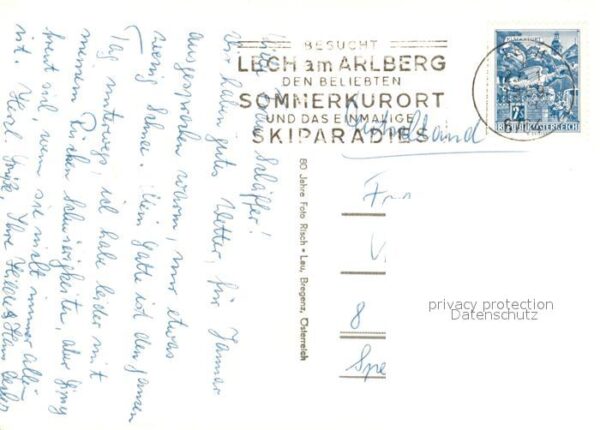 BESUCHT
LECH am ARLBERG
DEN BELIEBTEN
SOMMERKURORT
UND DAS EINMALIGE
SKIPARADIES
REPUBLIK ÖSTERREICH
Schäffer!
Wir haben gutes Wetter, für Januar
ausgesprochen warm, nur etwas
wenig Schnee. Mein Gatte ist den ganzen
Tag unterwegs, ich habe leider mit
meinem Rücken Schwierigkeiten, aber
freut sich, wenn sie nicht immer allein
ist. Herzl. Grüße, Ihre Hilde & Hans
80 Jahre Foto Risch - Lau, Bregenz, Österreich
Deutschland
8
privacy protection
Datenschutz